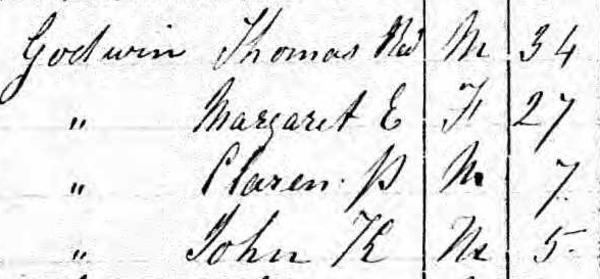 Godwin Thomas M 34
" Margaret E F 27
" Claren P M 7
" John K M 5